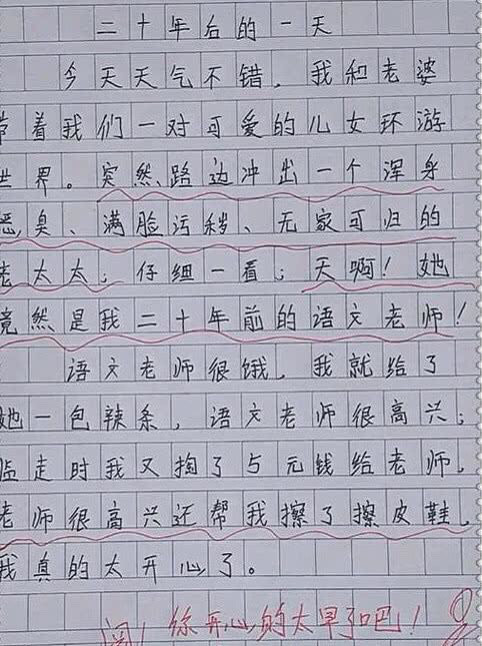 二十年后的一天
今天天气不错，我和老婆
带着我们一对可爱的儿女环游
世界。突然，路边冲出一个浑身
恶臭、满脸污秽、无家可归的
老太太；仔细一看；天啊！她
竟然是我二十年前的语文老师！
语文老师很饿，我就给了
她一包辣条，语文老师很高兴；
临走时我又掏了5元钱给老师，
老师很高兴还帮我擦了擦皮鞋。
我真的太开心了。
阅！你开心的太早了吧！